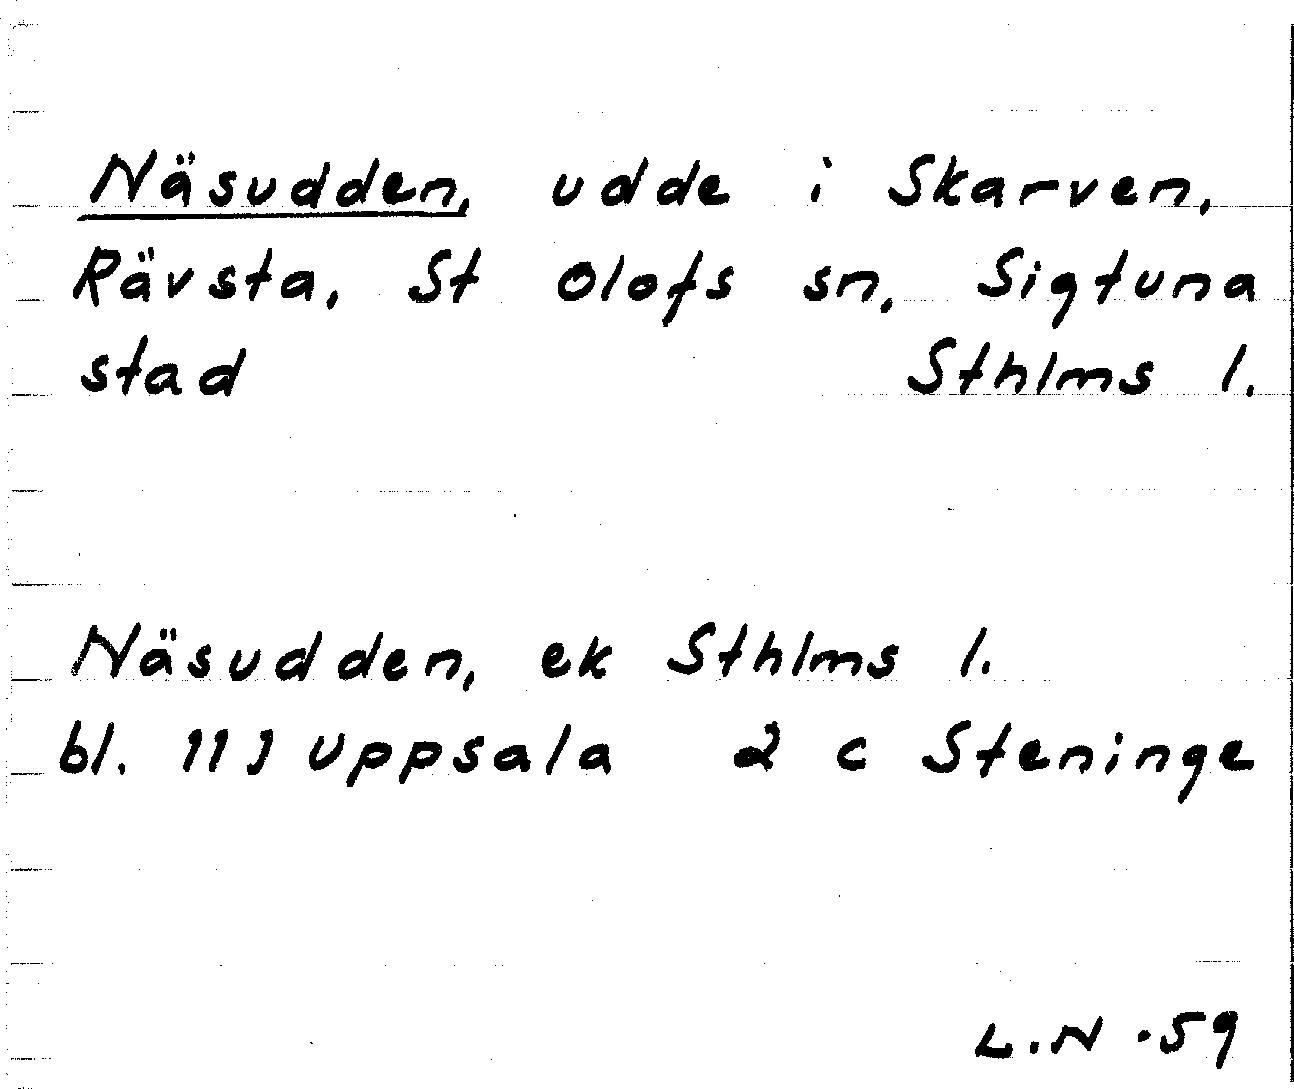 Näsudden, udde i Skarven,
Rävsta, St Olofs sn, Sigtuna
stad Sthlms l.
Näsudden, ek Sthlms l.
bl. 11J Uppsala 2 c Steninge
L.N -59